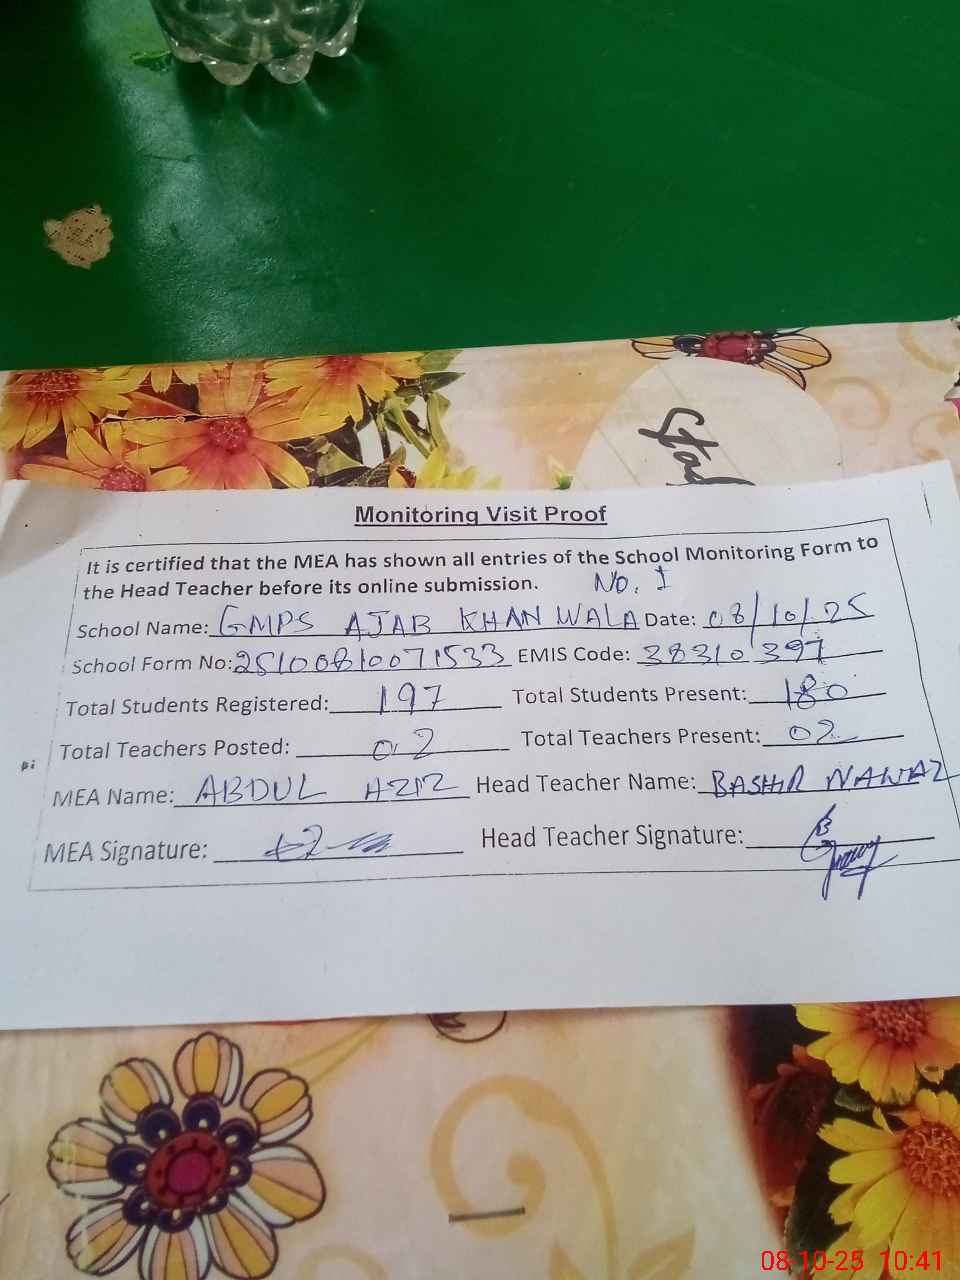 Monitoring Visit Proof
It is certified that the MEA has shown all entries of the School Monitoring Form to
the Head Teacher before its online submission. No. I
School Name: GMPS AJAB KHAN WALA Date: 08/10/25
School Form No: 25100810071533 EMIS Code: 38310397
Total Students Registered: 197 Total Students Present: 180
Total Teachers Posted: 02 Total Teachers Present: 02
MEA Name: ABDUL AZIZ Head Teacher Name: BASHIR NAWAZ
MEA Signature: Head Teacher Signature:
08-10-25 10:41